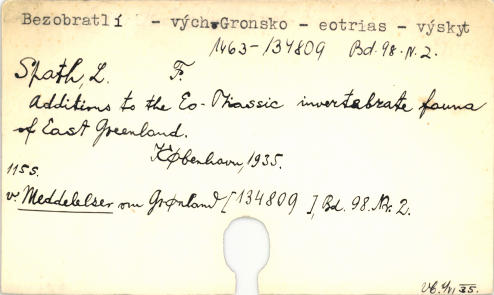 Bezobratlí - vých.Gronsko - eotrias - výskyt
1463-134809 Bd. 98. N. 2.
Spath, L. F.
Additions to the Eo-Triassic invertabrate fauna
of East Greenland.
København, 1935.
115 s.
v. Meddelelser om Grønland [134809], Bd. 98. Nr. 2.